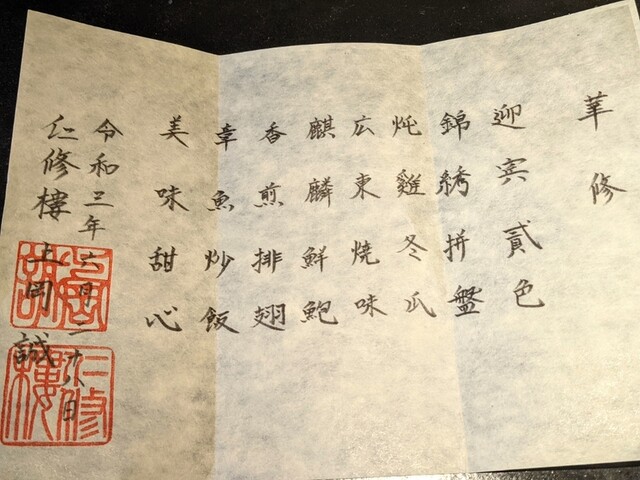 華修
迎宾貳色
錦綉拼盤
炖雞冬瓜
広東焼味
麒麟鮮鮑
香煎排翅
章魚炒飯
美味甜心
令和三年六月二十八日
仁修樓 上岡誠
仁修樓